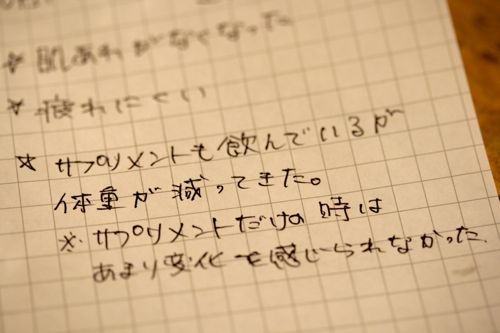 ☆ 肌あれがなくなった
☆ 疲れにくい
☆ サプリメントも飲んでいるが
体重が減ってきた。
※ サプリメントだけの時は
あまり変化を感じられなかった.